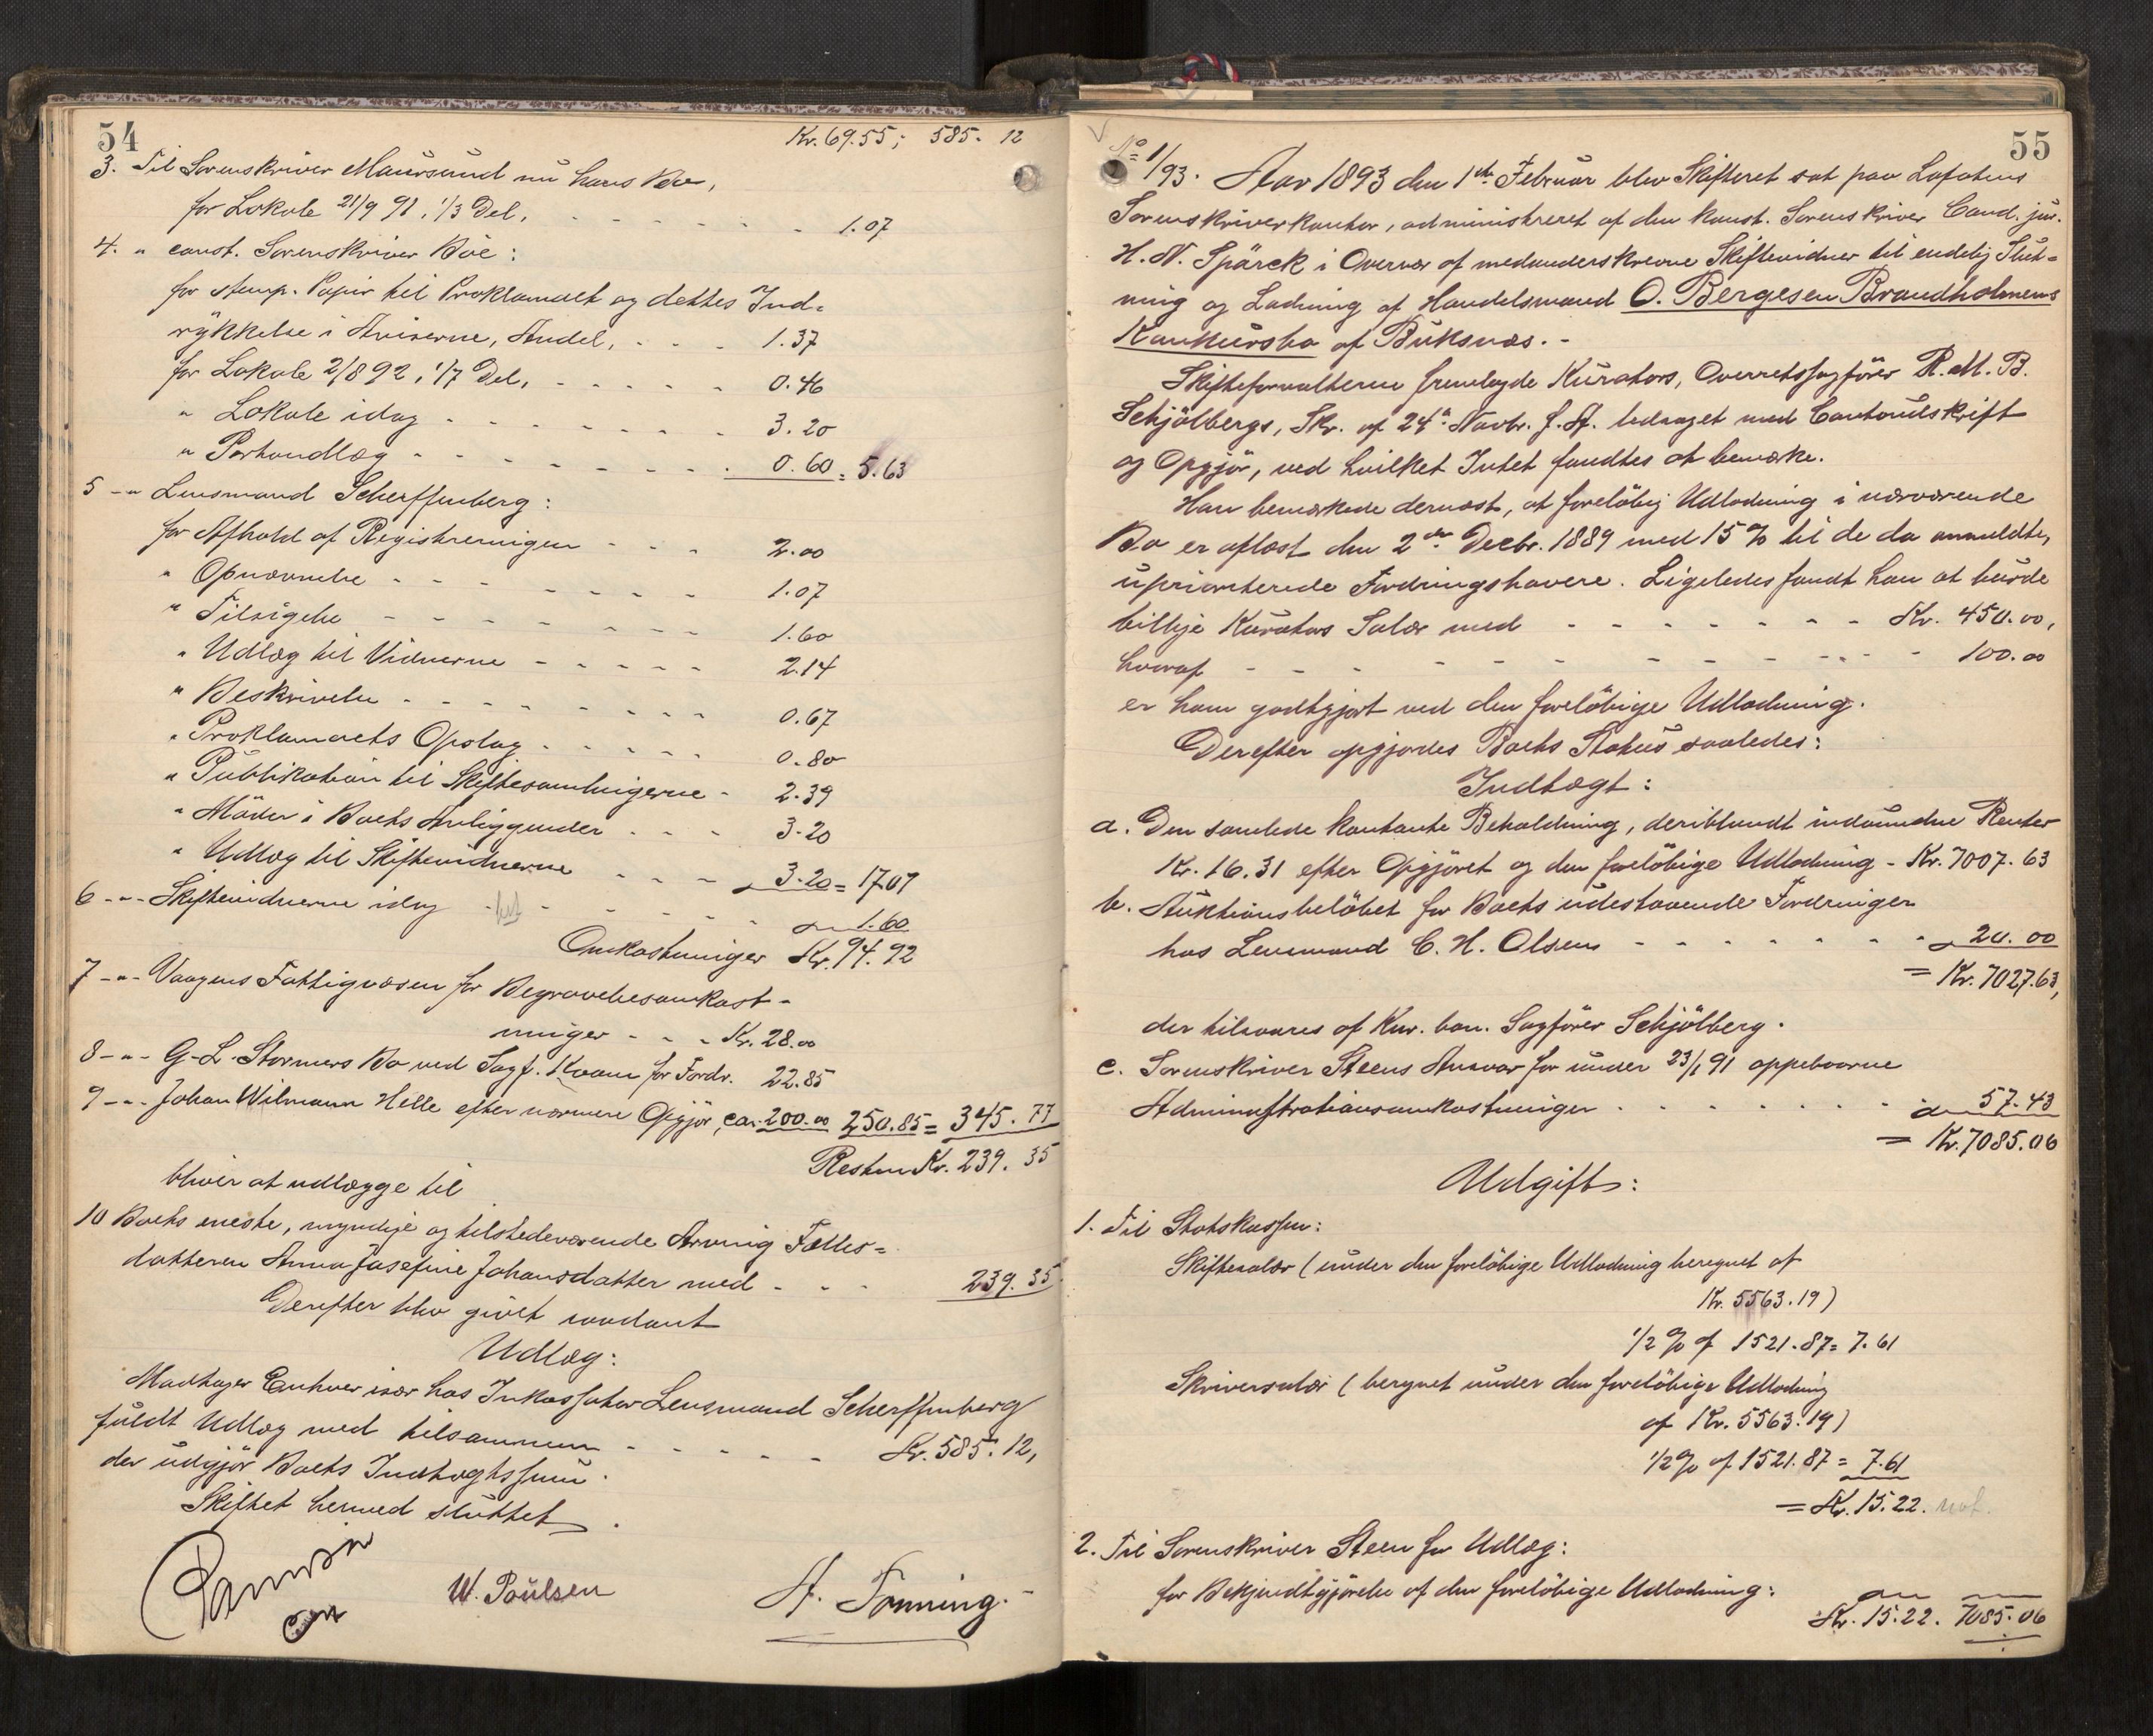 54
Kr. 69.55; 585. 12
3. Til Sorenskriver Maursund nu hans Bo,
for Lokale 21/9 91, 1/3 Del, - - - - - 1.07
4. " const. Sorenskriver Bøe:
for stemp. Papir til Proklamaet og dettes Ind=
rykkelse i Aviserne, Andel, - - - 1.37
for Lokale 2/8 92, 1/7 Del, - - - - - 0.46
" Lokale idag - - - - - - - 3.20
" Forhandlag - - - - - - - - 0.60 = 5.63
5 - " Lensmand Scherffenberg:
for Afhold af Registreringen - - - 2.00
" Opnævnelse - - - - - - - 1.07
" Tilsigelse - - - - - - - - 1.60
" Udlæg til Vidnerne - - - - - 2.14
" Beskrivelse - - - - - - - - 0.67
" Proklamaets Opslag - - - - - 0.80
" Publikation til Skiftesamlingerne - 2.39
" Möder i Boets Anliggender - - - 3.20
" Udlæg til Skiftevidnerne - - - " 3.20 = 17.07
6 - " - Skiftevidnerne idag - - - - - - - 1.60
Omkostninger Kr. 94.92
7 - " - Vaagens Fattigvæsen for Begravelsesomkost-
ninger - - - Kr. 28.00
8 - " - G. L. Stormers Bo ved Sagf. Kvam for Fordr. 22.85
9 - " - Johan Wilmann Helle efter nærmere Opgjör, ca. 200.00 250.85 = 345.77
Resten Kr. 239. 35
bliver at udlægge til
10 Boets eneste, myndige og tilstedeværende Arving Fælles=
datteren Anna Josefine Johansdatter med - - - 239.35
Derefter blev givet saadant
Udlæg:
Modtager Enhver især hos Inkassator Lensmand Scherffenberg
fuldt Udlæg med tilsammen - - - - - Kr. 585. 12,
der udgjör Boets Indtægtssum.
Skiftet hermed sluttet.
W. Poulsen
A. Tonning.
55
No 1/93. Aar 1893 den 1ste Februar blev Skifteret sat paa Lofotens
Sorenskriverkontor, administreret af den konst. Sorenskriver Cand. jur.
H. N. Spärck i Overvær af medunderskrevne Skiftevidner til endelig Slut=
ning og Lodning af Handelsmand O. Bergesen Brandholmens
Konkursbo af Buksnæs. -
Skifteforvalteren fremlagde Kurators, Overretssagförer R. M. B.
Schjölbergs, Skr. af 24de Novbr. f. A. ledsaget med Contoudskrift
og Opgjör, ved hvilket Intet fandtes at bemærke.
Han bemærkede dernæst, at forelöbig Udlodning i nærværende
Bo er oplæst den 2den Decbr. 1889 med 15 % til de da anmeldte,
uprioriterede Fordringshavere. Ligeledes fandt han at burde
billige Kurators Salær med - - - - - - - Kr. 450.00,
hvoraf - - - - - - - - - - 100.00
er ham godtgjort ved den forelöbige Udlodning.
Derefter opgjordes Boets Status saaledes:
Indtægt:
a. Den samlede kontante Beholdning, deriblandt indvundne Renter
Kr. 16.31 efter Opgjöret og den forelöbige Udlodning - Kr. 7007. 63
b. Auktionsbelöbet for Boets udestaaende Fordringer
hos Lensmand C. H. Olsen - - - - - - - " 20.00
= Kr. 7027.63,
der tilsvares af Kur. bon. Sagförer Schjölberg.
c. Sorenskriver Steens Ansvar for under 23/1 91 oppebaarne
Administrationsomkostninger - - - - - - - " 57.43
= Kr. 7085.06
Udgift:
1. Til Statskassen:
Skiftesalær (under den forelöbige Udlodning beregnet af
Kr. 5563.19)
1/2 % af 1521.87 = 7.61
Skriversalær (beregnet under den forelöbige Udlodning
af Kr. 5563.19)
1/2 % af 1521.87 = 7.61
= Kr. 15.22. not.
2. Til Sorenskriver Steen for Udlæg:
for Bekjendtgjörelse af den forelöbige Udlodning:
Kr. 15.22. 7085.06